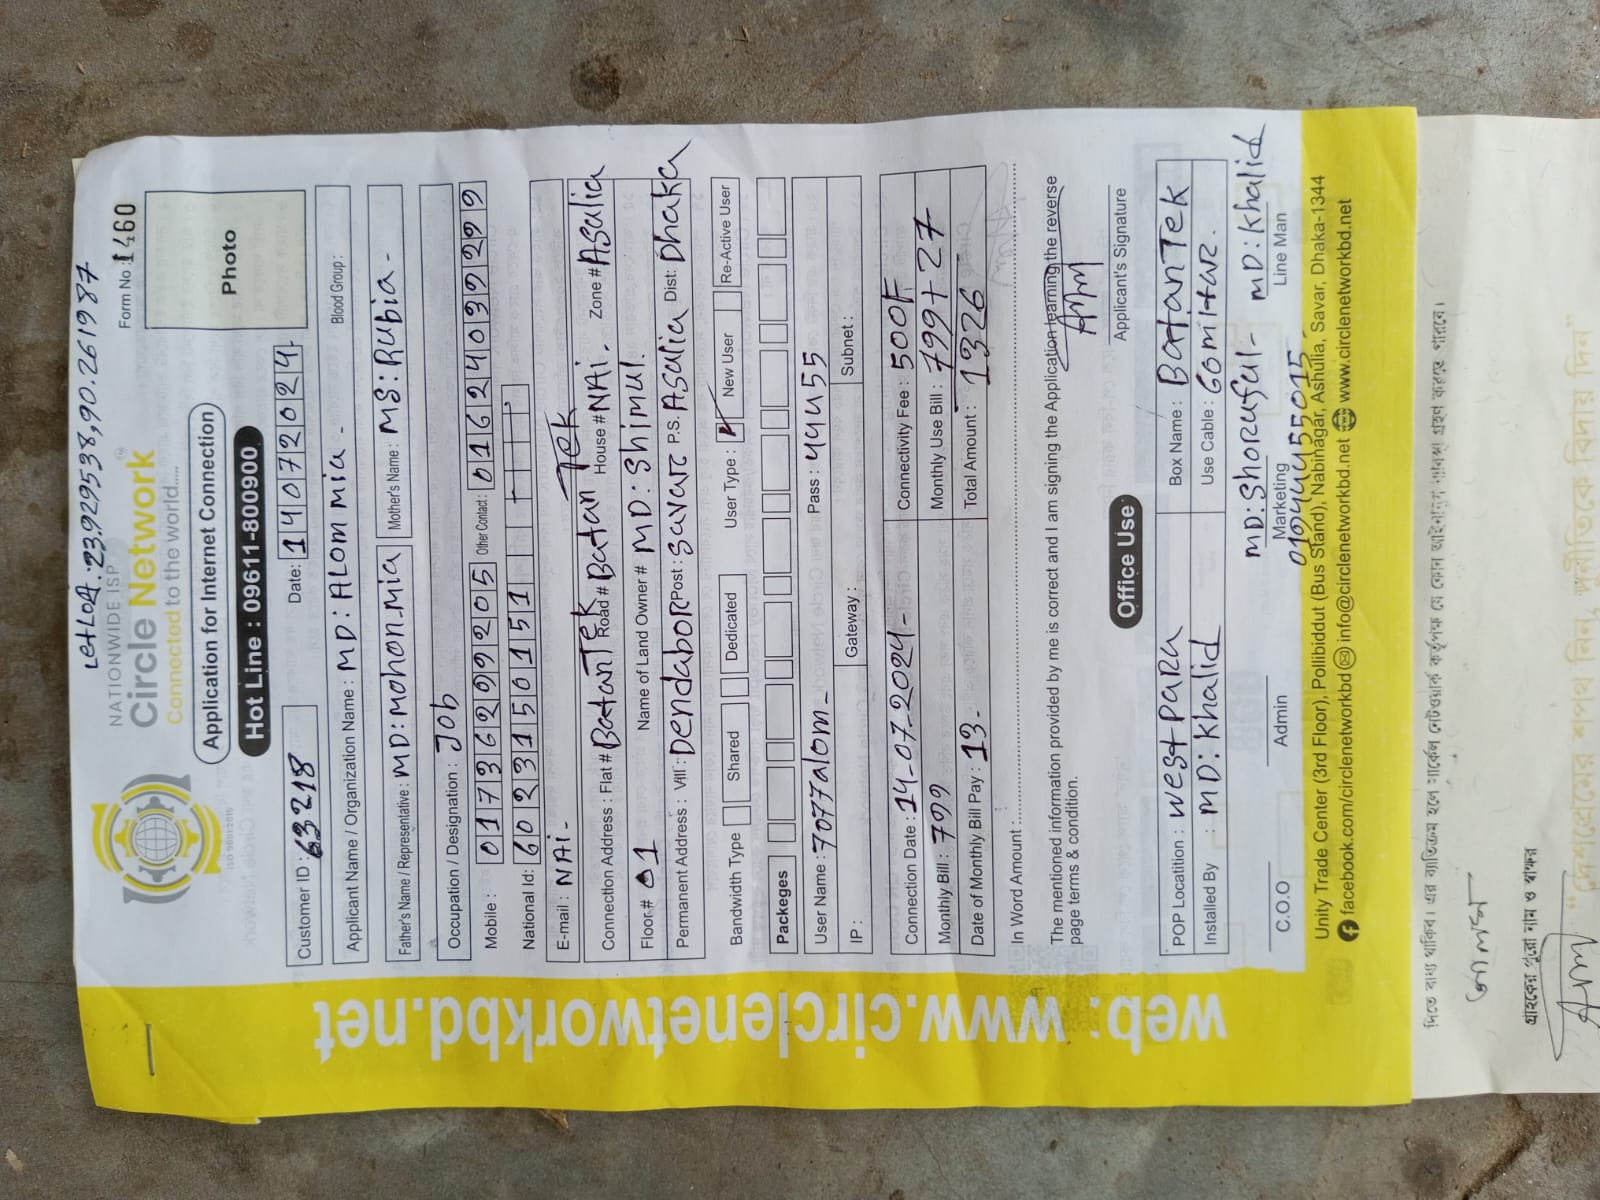 LetLOA: 23.929538,90.261987
NATIONWIDE ISP
Circle Network™
Connected to the world.....
Form No : 1460
Application for Internet Connection
Hot Line : 09611-800900
Photo
ISO 9001:2015
Customer ID : 63218
Date: 14072024
Applicant Name / Organization Name : MD: ALOM mia -
Blood Group :
Father's Name / Representative : MD: Mohon.Mia
Mother's Name : MS: Rubia -
Occupation / Designation : Job
Mobile : 01736299205
Other Contact : 01624039299
National Id: 6023150151
E-mail : NAi -
Connection Address : Flat # BatanTek Road # Batan Tek House # NAi - Zone # Asalia
Floor # 01 Name of Land Owner # MD: Shimul.
Permanent Address : Vill : Dendabor Post : Savarc P.S: Asalia Dist: Dhaka
Bandwidth Type Shared Dedicated User Type : New User Re-Active User
Packeges
User Name : 7077alom - Pass : 444455
IP : Gateway : Subnet :
Connection Date : 14-07-2024 - Connectivity Fee : 500F
Monthly Bill : 799 Monthly Use Bill : 799+27
Date of Monthly Bill Pay : 13 - Total Amount : 1326
In Word Amount :
The mentioned information provided by me is correct and I am signing the Application learning the reverse
page terms & condition.
Applicant's Signature
Office Use
POP Locatition : West Para Box Name : BatanTek
Installed By : MD: Khalid Use Cable :
MD: Shoruful - MD: Khalid
C.O.O Admin Marketing Line Man
Unity Trade Center (3rd Floor), Pollibiddut (Bus Stand), Nabinagar, Ashulia, Savar, Dhaka-1344
facebook.com/circlenetworkbd info@circlenetworkbd.net www.circlenetworkbd.net
web: www.circlenetworkbd.net
গ্রাহকের পুরো নাম ও স্বাক্ষর
"দেশপ্রেমের শপথ নিন, দুর্নীতিকে বিদায় দিন"